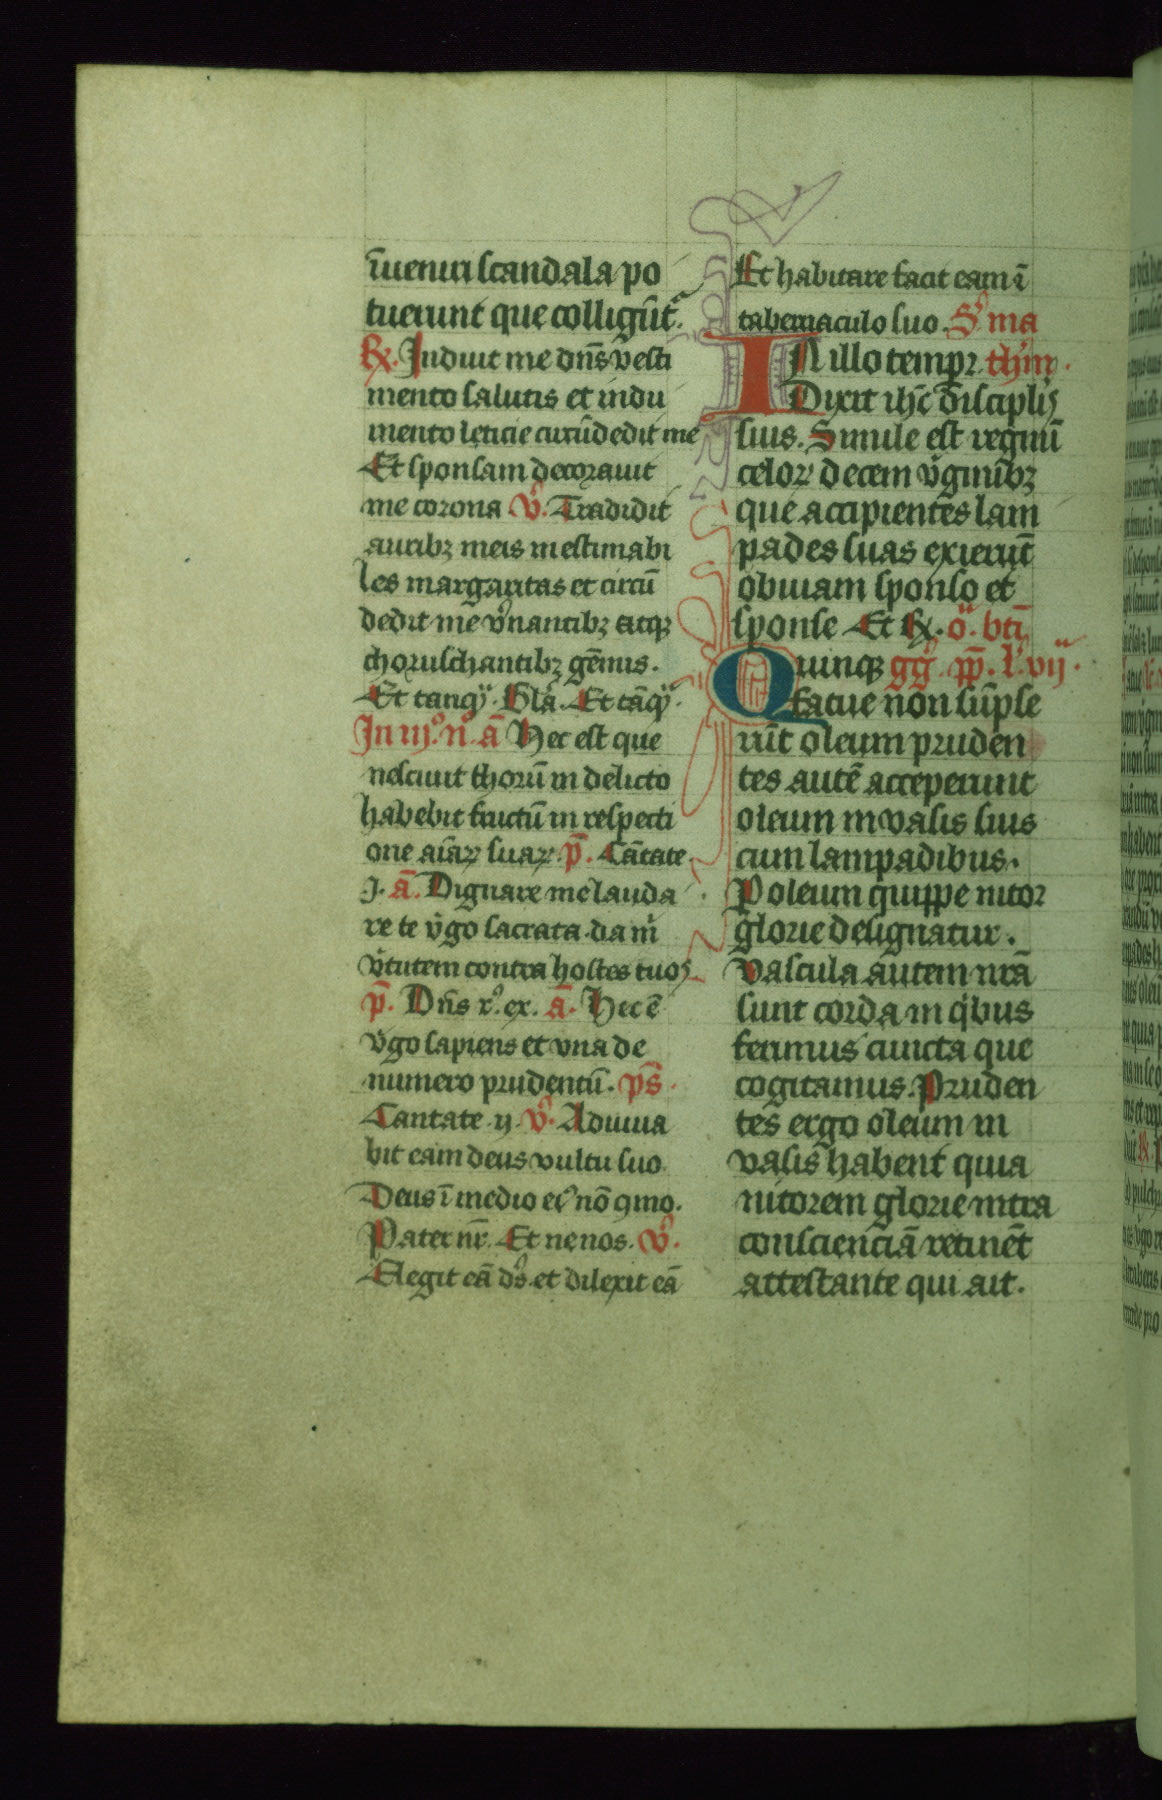 īueniri scandala po
tuerunt que colligūt᷑.
℟. Induit me dn̄s vesti
mento salutis et indu
mento leticie circūdedit me
Et sponsam decorauit
me corona v̊. Tradidit
auribꝫ meis inestimabi
les margaritas et circū
dedit me v̾nantibꝫ atqꝫ
choruschantibꝫ gēmis.
Et tanqͣ. Glā. Et tāqͣ.
In iijͦ. nͦ. ā Hec est que
nesciuit thorū in delicto
habebit fructū in respecti
one aīaꝝ suaꝝ. p̄. Cātate
j. ā. Dignare me lauda
re te v̾go sacrata. da m̍
v̾tutem contra hostes tuos
p̄. Dn̄s rͦ. ex. ā. Hec ē
v̾go sapiens et vna de
numero prudentū. ps̄.
Cantate ij v̊. Adiuua
bit eam deus vultu suo
Deus ī medio eiꝰ nō ꝯmo.
Pater nr̄. Et ne nos. v̊.
Elegit eā ds̄. et dilexit eā
Et habitare facit eam ī
tabernaculo suo. Sͫ ma
IN illo tempr thm̄.
Dixit ihc̄ disciplis
suis. Simile est regnū
celoꝝ decem v̾ginibꝫ
que accipientes lam
pades suas exierūt
obuiam sponso et
sponse Et ℟. oͣ. bti
Quinqꝫ gg̍. pp̄. lͦ. vij.
fatue non sūpse
rūt oleum pruden
tes autē acceperunt
oleum in vasis suis
cum lampadibus.
P oleum quippe nitor
glorie designatur.
Vascula autem nr̄a
sunt corda in qͥbus
ferimus cuncta que
cogitamus. Pruden
tes ergo oleum in
vasis habent quia
nitorem glorie intra
conscienciā retinēt
attestante qui ait.